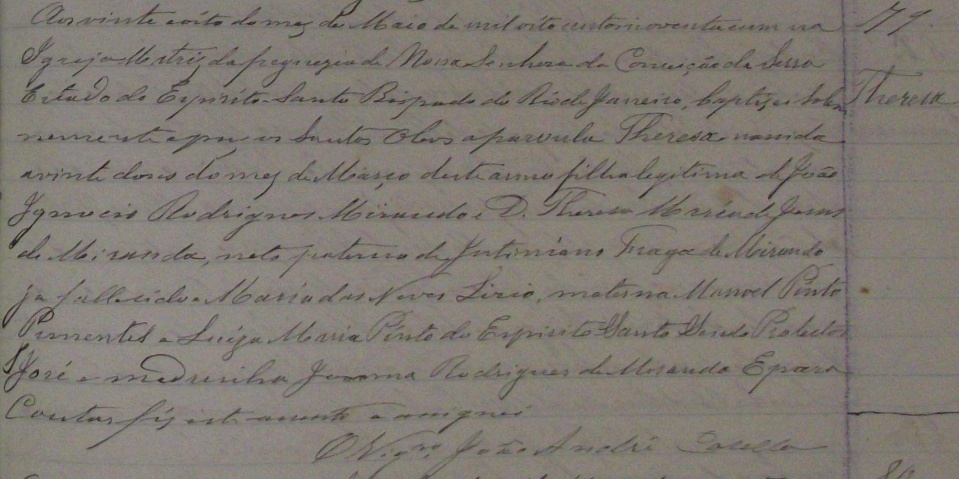 Aos vinte e oito do mez de Maio de mil oito centos noventa e um na 79
Igreja Matriz da freguezia de Nossa Senhora da Conceição da Serra
Estado do Espirito-Santo Bispado do Rio de Janeiro, baptizei solem Theresa
nemente e puz os Santos Oleos a parvula Theresa nascida
a vinte dous do mez de Março deste anno filha legitima de João
Ignacio Rodrigues Miranda e D. Theresa Maria de Jesus
de Miranda, neto paterno de Justiniano Fraga de Miranda
ja fallecido e Maria das Neves Lirio, materna Manoel Pinto
Pimentel e Luiza Maria Pinto do Espirito Santo Sendo Protector
S José e madrinha Joanna Rodrigues de Miranda E para
Constar fiz este assento e assignei
O Vigro João André Casella
80